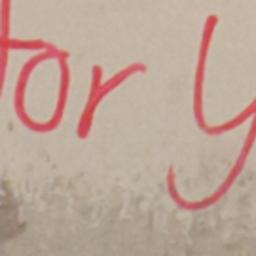 for y